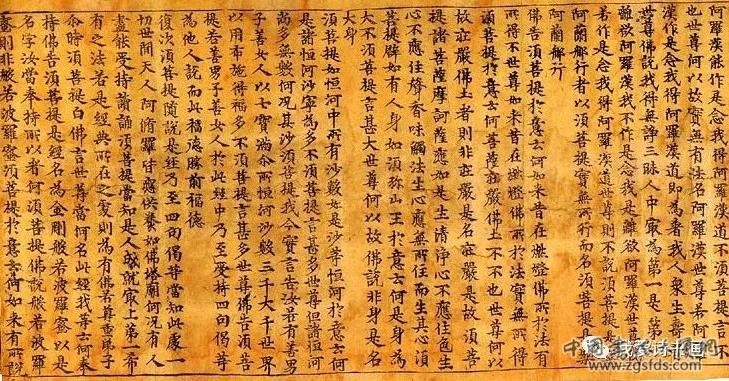 阿羅漢能作是念我得阿羅漢道不須菩提言不
也世尊何以故實無有法名阿羅漢世尊若阿羅
漢作是念我得阿羅漢道即為著我人衆生壽
世尊佛說我得無諍三昧人中冣為第一是第
離欲阿羅漢我不作是念我是離欲阿羅漢世尊
若作是念我得阿羅漢道世尊則不說須菩提
阿蘭那行者以須菩提實無所行而名須菩提是
阿蘭那行
佛告須菩提於意云何如来昔在燃燈佛所於法有
所得不世尊如来昔在燃燈佛所於法實無所得
須菩提於意云何菩薩莊嚴佛土不不也世尊何以
故莊嚴佛土者則非莊嚴是名莊嚴是故須菩
提諸菩薩摩訶薩應如是生清淨心不應住色生
心不應住聲香味觸法生心應無所住而生其心須
菩提譬如有人身如須弥山王於意云何是身為
大不須菩提言甚大世尊何以故佛說非身是名
大身
須菩提如恒河中所有沙數如是沙等恒河於意云何
是諸恒河沙寧為多不須菩提言甚多世尊但諸恒河
尚多無數何況其沙須菩提我今實言告汝若有善男
子善女人以七寶滿尒所恒河沙數三千大千世界
以用布施得福多不須菩提言甚多世尊佛告須菩
提若善男子善女人於此經中乃至受持四句偈等
為他人說而此福德勝前福德
復次須菩提隨說是經乃至四句偈等當知此處一
切世間天人阿脩羅皆應供養如佛塔廟何況有人
盡能受持讀誦須菩提當知是人成就冣上第一希
有之法若是經典所在之處則為有佛若尊重弟子
尒時須菩提白佛言世尊當何名此經我等云何奉
持佛告須菩提是經名為金剛般若波羅蜜以是
名字汝當奉持所以者何須菩提佛說般若波羅
蜜則非般若波羅蜜須菩提於意云何如来有所說
www.zgsfds.com